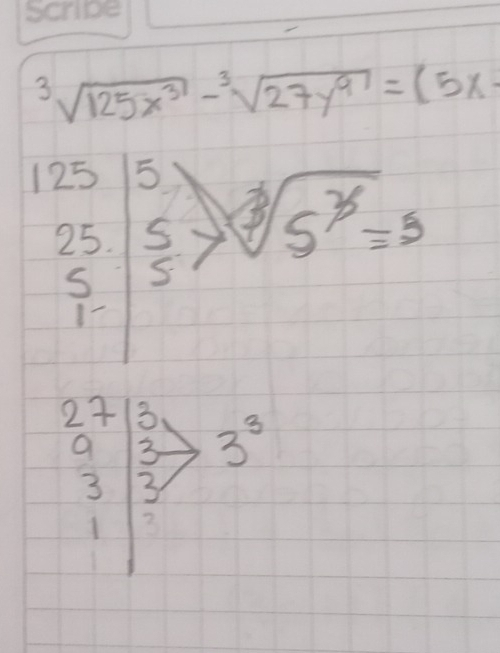 Scribe
³√125x³ - ³√27y⁹ = (5x -
125 | 5
25. | 5
5 | 5
1
³√5³ = 5
27 | 3
9 | 3
3 | 3
1 | 3
3³